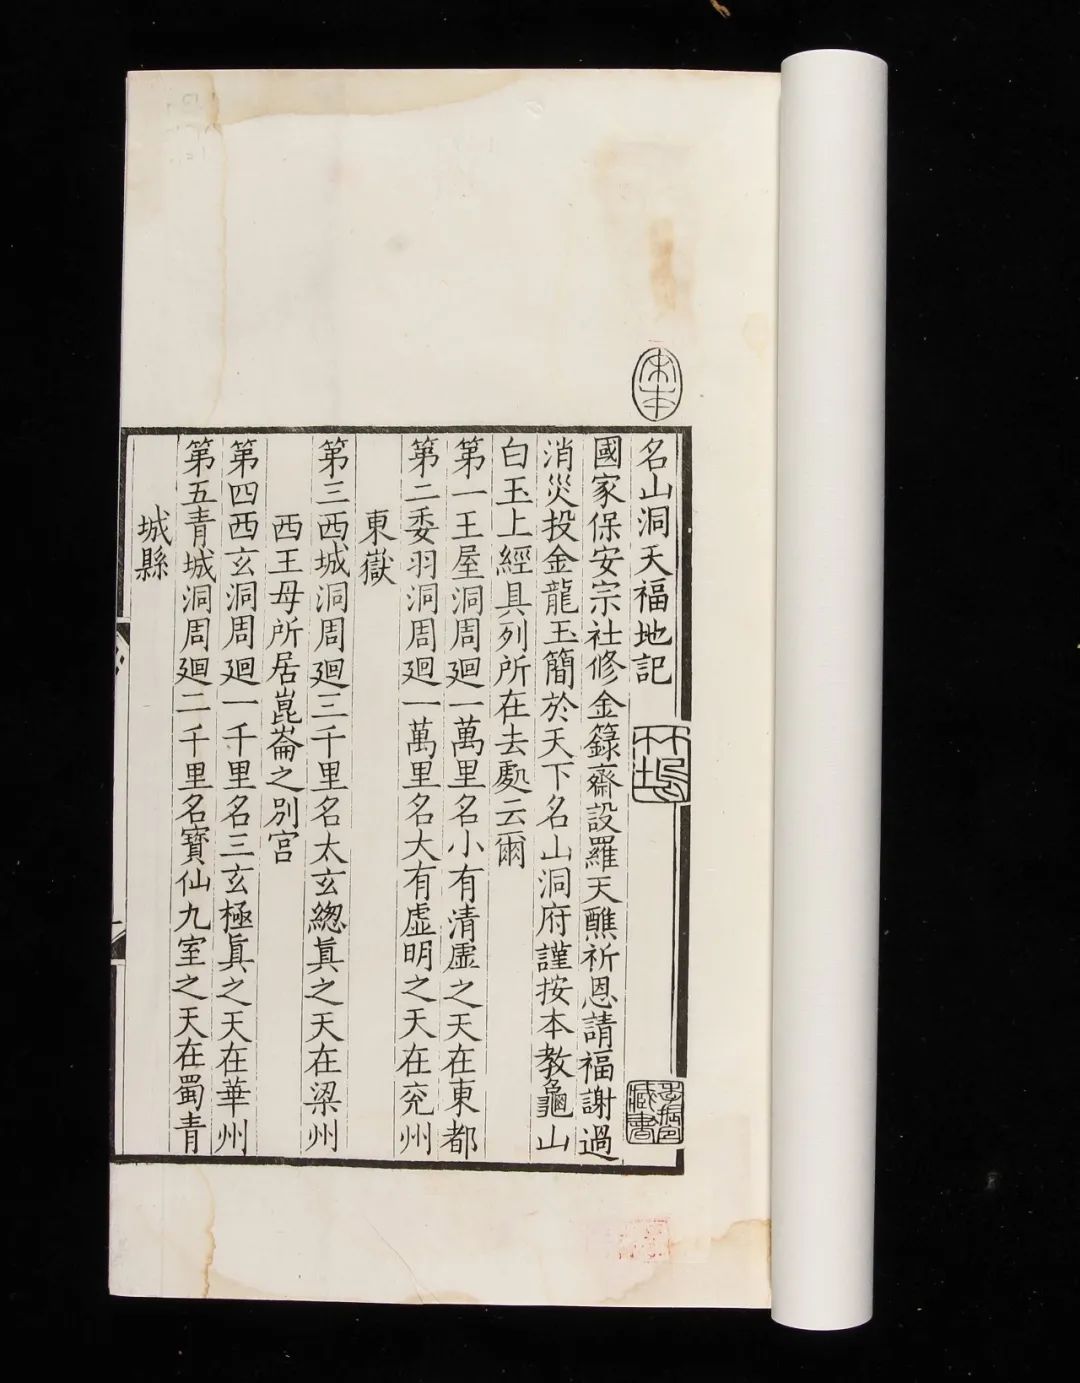 名山洞天福地記
國家保安宗社修金籙齋設羅天醮祈恩請福謝過
消災投金龍玉簡於天下名山洞府謹按本教龜山
白玉上經具列所在去處云爾
第一王屋洞周廻一萬里名小有清虛之天在東都
第二委羽洞周廻一萬里名大有虛明之天在兖州
東嶽
第三西城洞周廻三千里名太玄總眞之天在梁州
西王母所居崑崙之別宫
第四西玄洞周廻一千里名三玄極眞之天在華州
第五青城洞周廻二千里名寶仙九室之天在蜀青
城縣
宋本
竹塢